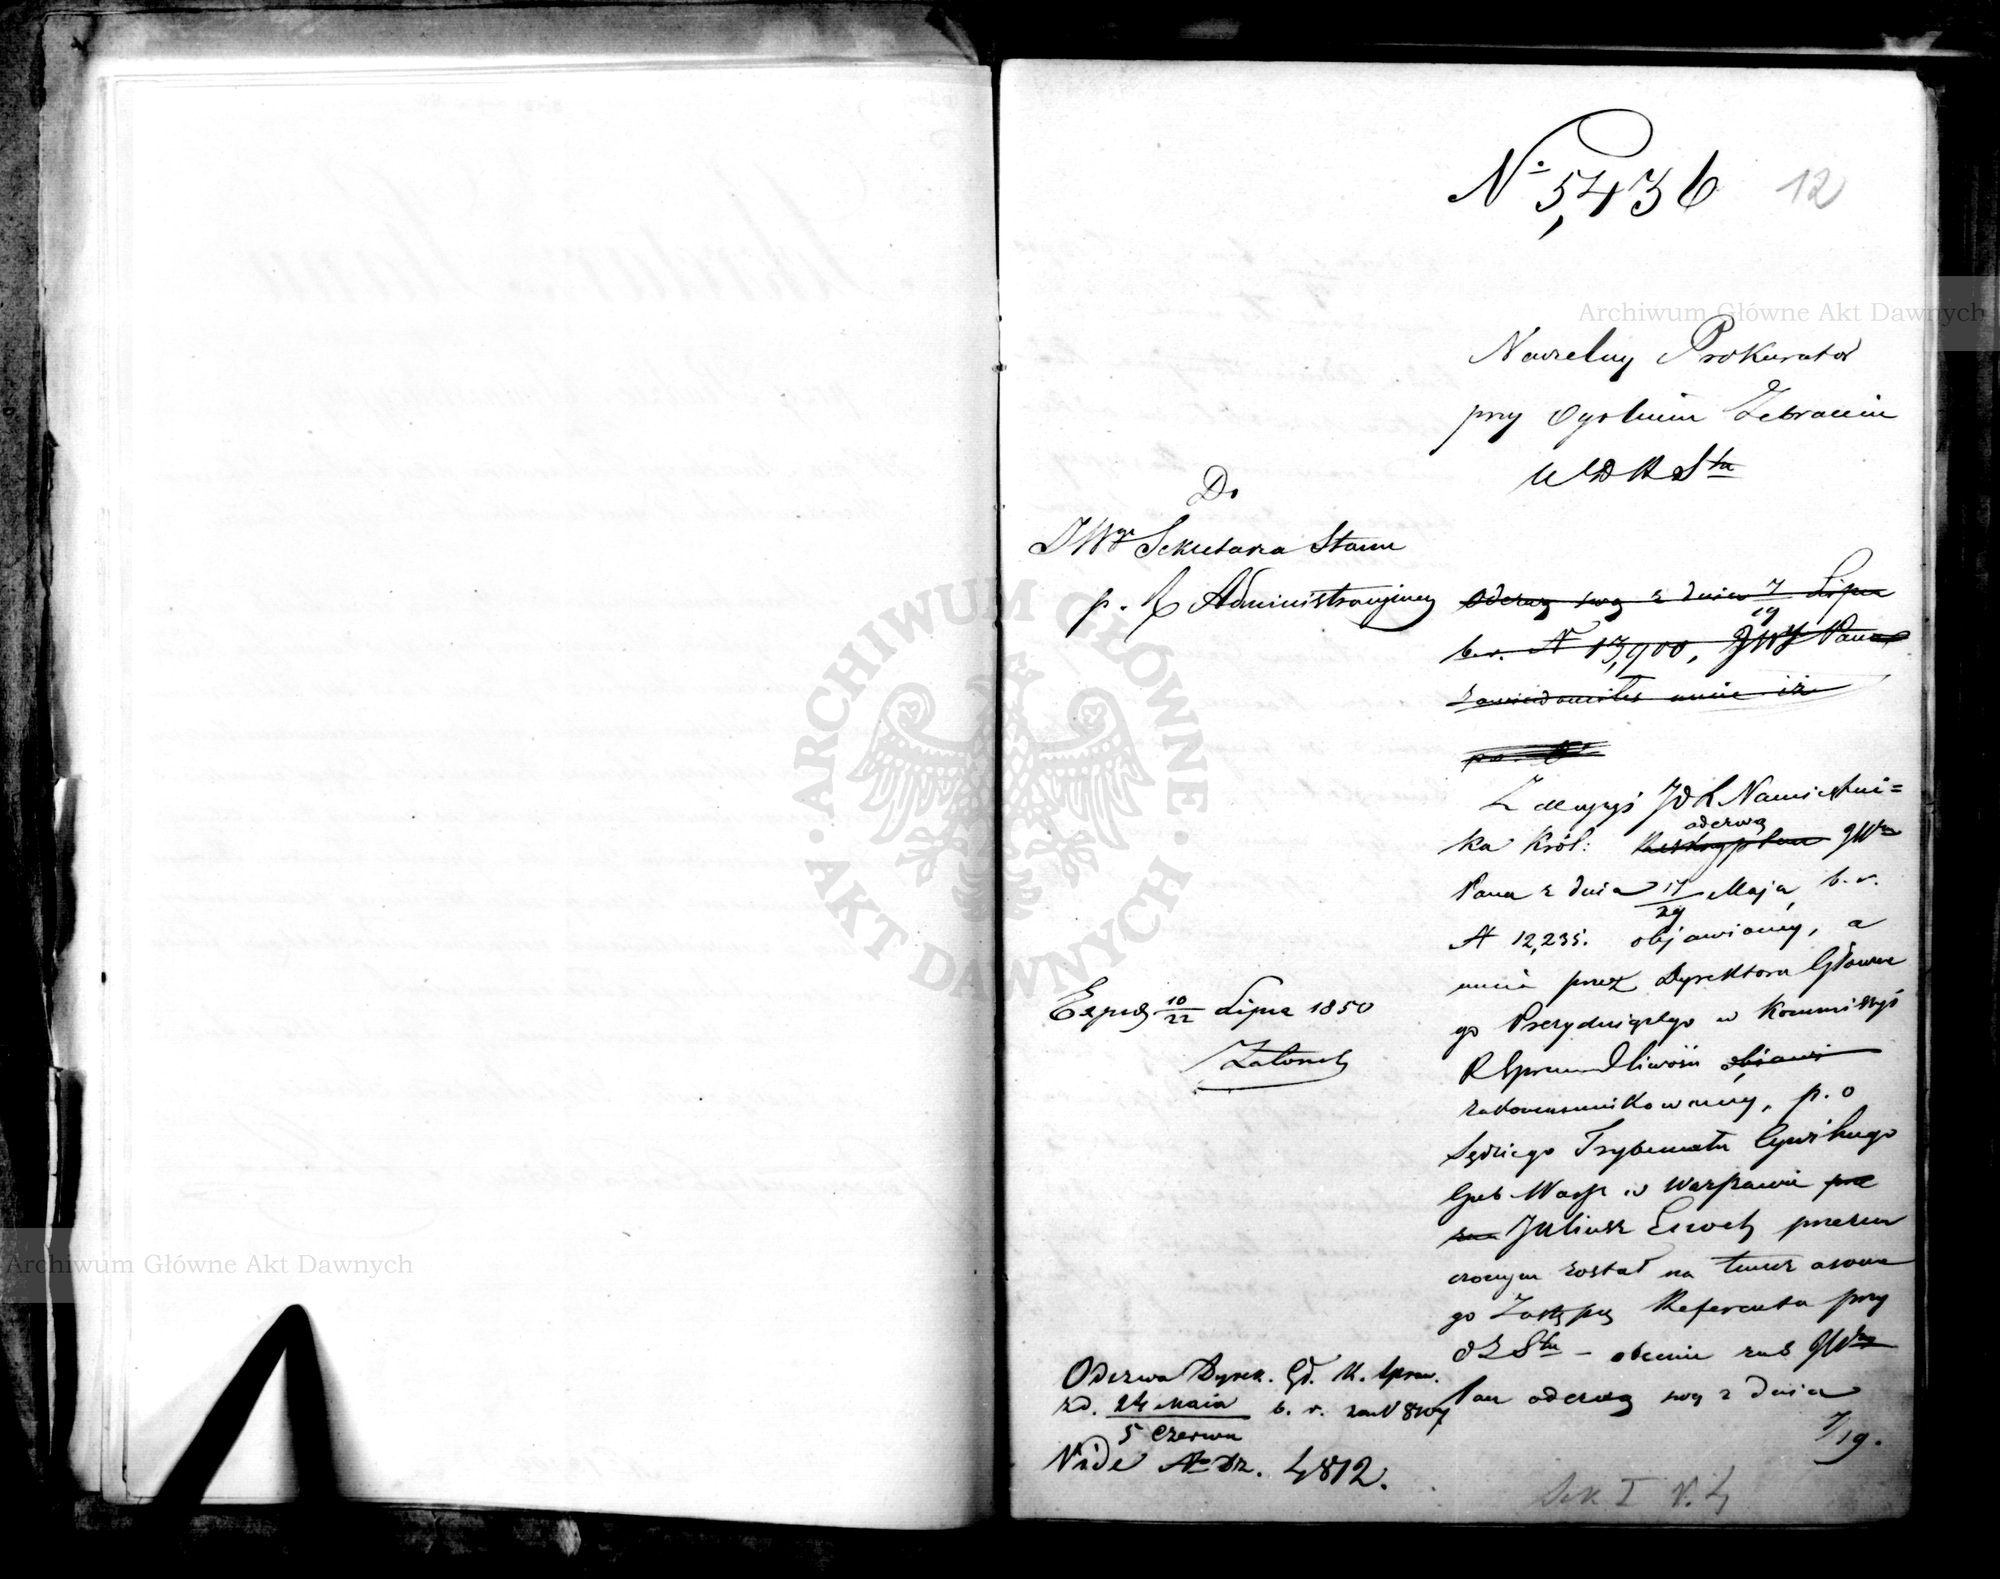 № 5,436
12
Naczelny Prokurator
przy Ogolnem Zebraniu
W D R Stu
Do
JWgo Sekretarza Stanu
p. R Administracyjney
Odezwą swą z dnia 7/19 Lipca
b.r. N 13,900, JWy Pan
zawiadomiłeś mnie iż
Z decyzyi JO X Namiestni=
ka Król: odezwą JWo
Pana z dnia 17/29 Maja b.r.
N 12,235. objawioney, a
mnie przez Dyrektora Główne
go Prezydującego w Kommissyi
R Sprawiedliwości objawi
zakommunikowaney, p.o
Sędziego Trybunału Cywilnego
Gub Warsz w Warszawie prze
zna Juliusz Enoch przezna
czonym został na tymcz asowe
go Zastępcę Referenta przy
O Z Stu – obecnie zaś JWny
Pan odezwą swą z dnia
7/19.
Exped 10/22 Lipca 1850
Odezwa Dyrek. Gł. K. Spraw.
z d. 24 Maja / 5 Czerwca b. r. za N
Vide No Dz. 4812.
Archiwum Główne Akt Dawnych
Archiwum Główne Akt Dawnych
ARCHIWUM GŁÓWNE AKT DAWNYCH